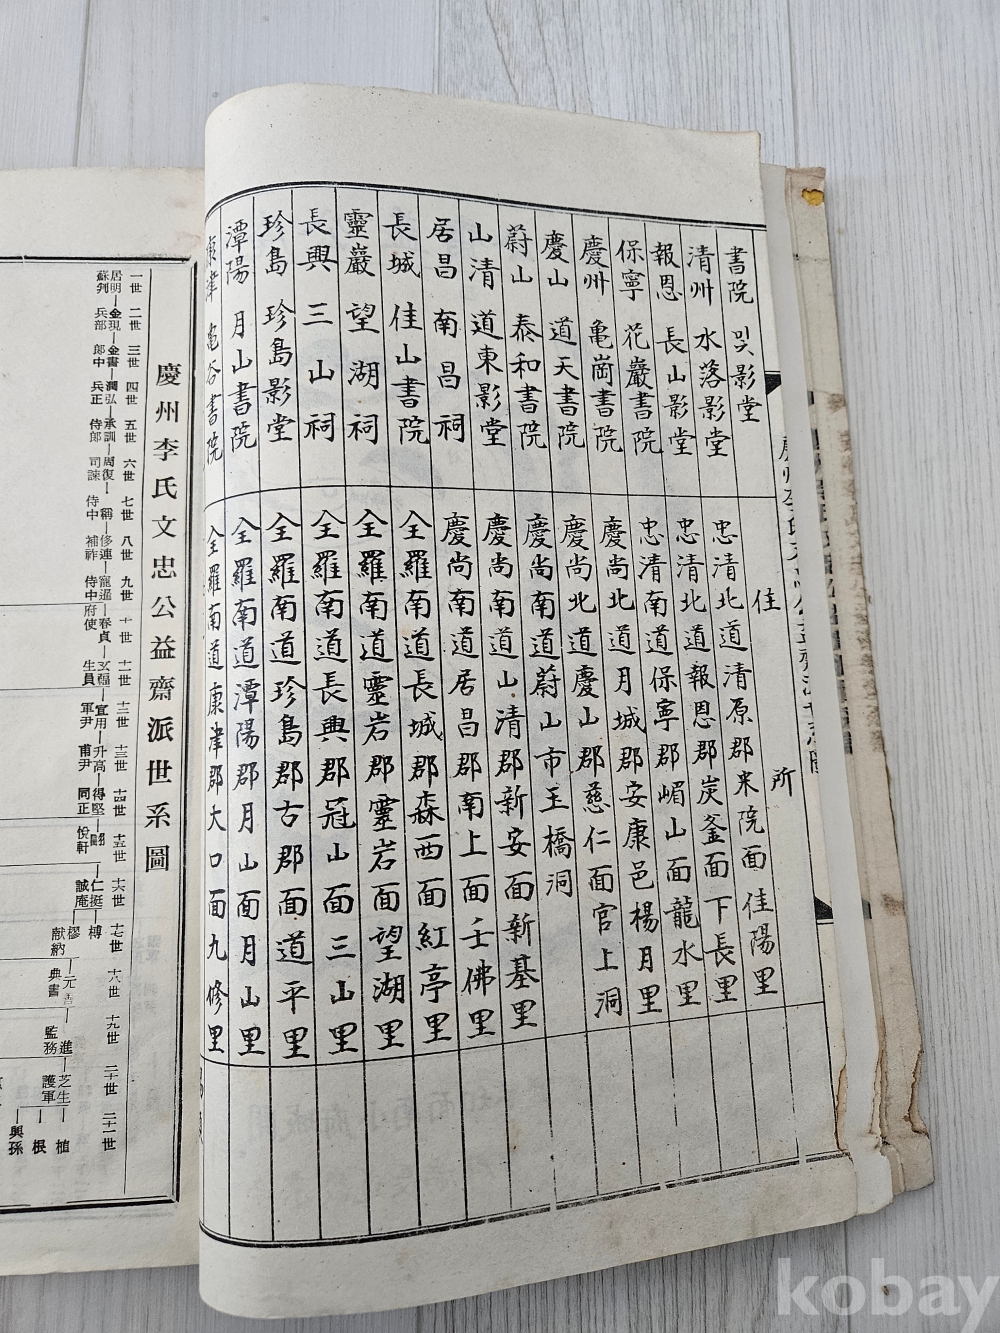 書院 및 影堂 住所
清州 水落影堂 忠清北道清原郡米院面佳陽里
報恩 長山影堂 忠清北道報恩郡炭釜面下長里
保寧 花巖書院 忠清南道保寧郡嵋山面龍水里
慶州 亀崗書院 慶尚北道月城郡安康邑楊月里
慶山 道天書院 慶尚北道慶山郡慈仁面官上洞
蔚山 泰和書院 慶尚南道蔚山市王橋洞
山清 道東影堂 慶尚南道山清郡新安面新基里
居昌 南昌祠 慶尚南道居昌郡南上面壬佛里
長城 佳山書院 全羅南道長城郡森西面紅亭里
靈巖 望湖祠 全羅南道靈岩郡靈岩面望湖里
長興 三山祠 全羅南道長興郡冠山面三山里
珍島 珍島影堂 全羅南道珍島郡古郡面道平里
潭陽 月山書院 全羅南道潭陽郡月山面月山里
康津 亀谷書院 全羅南道康津郡大口面九修里
慶州李氏文忠公益齋派世系圖
一世 二世 三世 四世 五世 六世 七世 八世 九世 十世 十一世 十二世 十三世 十四世 十五世 十六世 十七世 十八世 十九世 二十世 二十一世
居明 金現 金書 潤弘 承訓 周復 稱 侈連 寵暹 春貞 玄福 宣用 升高 得堅 翮 仁挺 榑 元善 進 芝生 植
蘇判 兵部 郎中 兵正 侍郎 司諫 侍中 補祚 侍中 府使 生員 軍尹 甫尹 同正 悅軒 誠庵 樛 献納 典書 監務 護軍 根
興孫
kobay